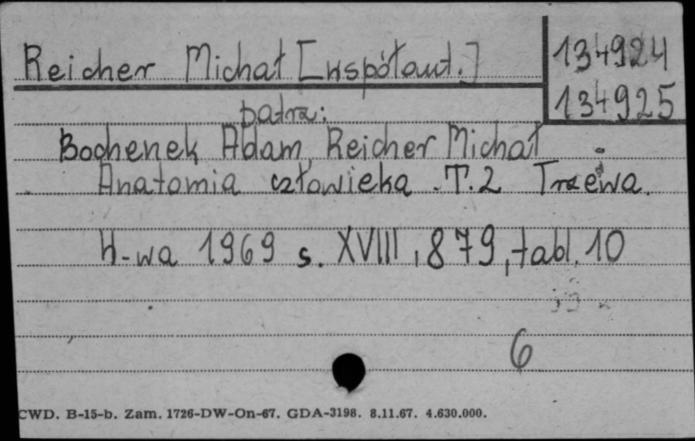 Reicher Michał [współaut.]
134924
134925
patrz:
Bochenek Adam, Reicher Michał
Anatomia człowieka. T. 2 Trzewa.
W-wa 1969 s. XVIII, 879, tabl. 10
6
CWD. B-15-b. Zam. 1726-DW-On-67. GDA-3198. 8.11.67. 4.630.000.